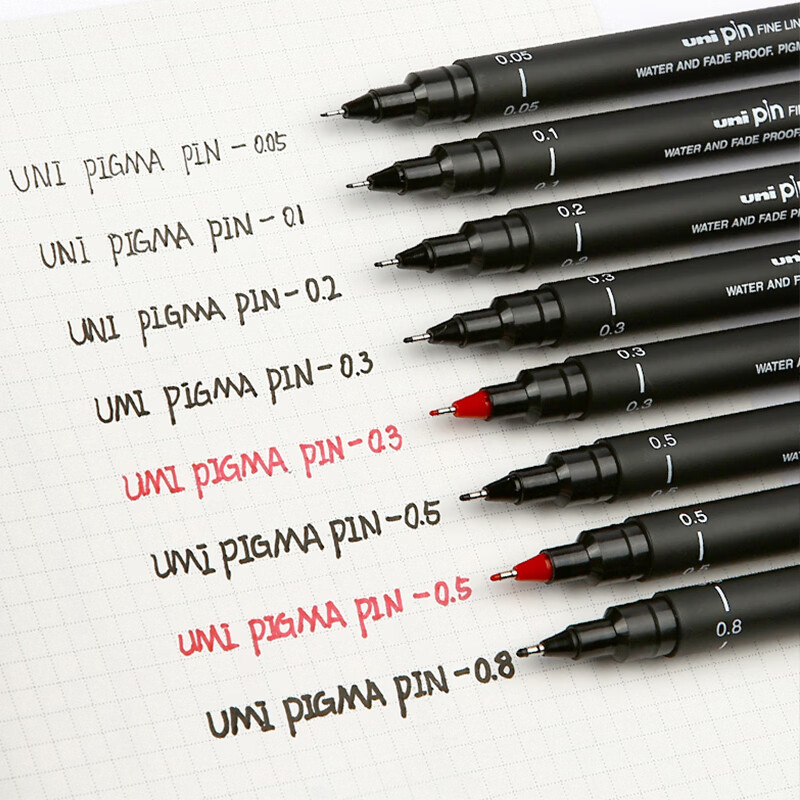 0.05
uni pin FINE LIN
WATER AND FADE PROOF, PIGM
0.05
UNI PIGMA PIN - 0.05
0.1
uni pin FI
WATER AND FADE PROOF
0.1
UNI PIGMA PIN - 0.1
0.2
uni pi
WATER AND FADE P
0.2
UNI PIGMA PIN - 0.2
0.3
un
WATER AND F
0.3
UMI PIGMA PIN - 0.3
0.3
WATER A
0.3
UMI PIGMA PIN - 0.3
0.5
WA
0.5
UMI PIGMA PIN - 0.5
0.5
0.5
UMI PIGMA PIN - 0.5
0.8
UMI PIGMA PIN - 0.8